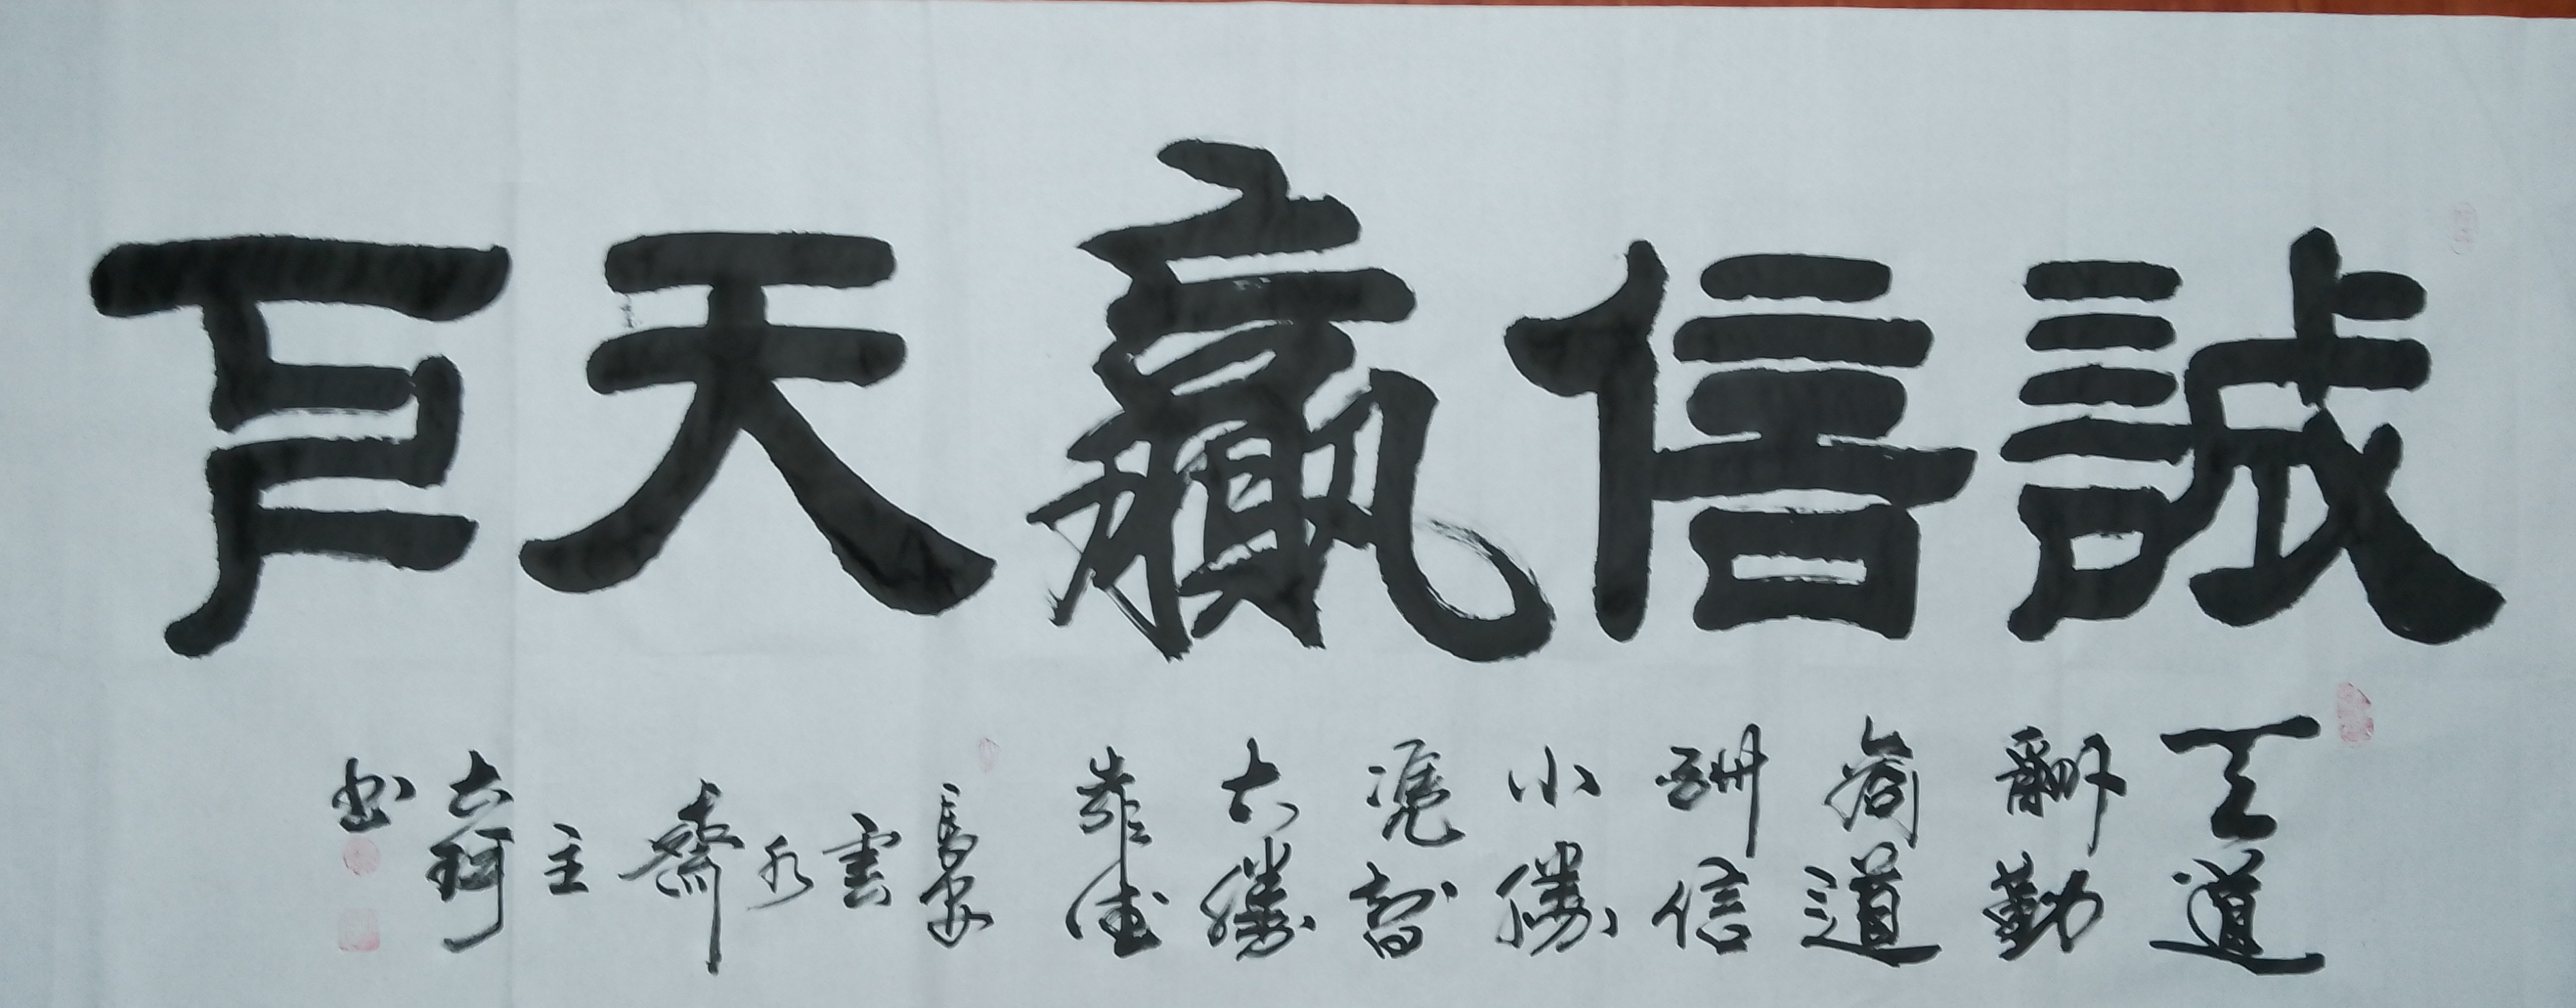 誠信贏天下
天道
酬勤
商道
酬信
小勝
憑智
大勝
靠德
長安
雲水齋主
珂
書